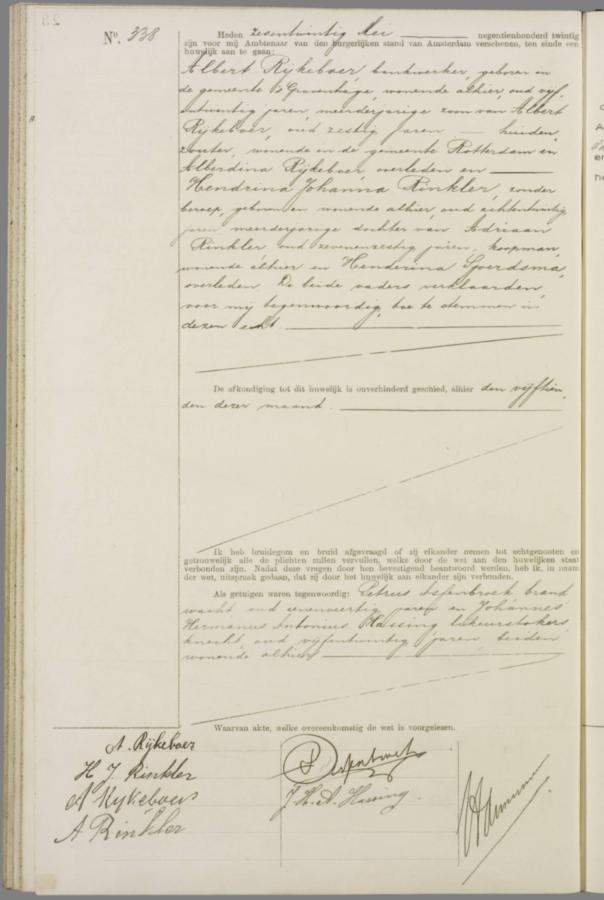 Nº. 338
Heden zesentwintig Mei negentienhonderd twintig
zijn voor mij Ambtenaar van den burgerlijken stand van Amsterdam verschenen, ten einde een
huwelijk aan te gaan:
Albert Rijkeboer, bankwerker, geboren in
de gemeente 's Gravenhage, wonende alhier, oud vijf
entwintig jaren, meerderjarige zoon van Albert
Rijkeboer, oud zestig jaren — huiden
zouter, wonende in de gemeente Rotterdam en
Alberdina Rijkeboer, overleden en
Hendrina Johanna Rinkler, zonder
beroep, geboren en wonende alhier, oud achtentwintig
jaren, meerderjarige dochter van Adriaan
Rinkler oud zevenenzestig jaren, koopman,
wonende alhier en Henderina Sjoerdsma,
overleden. De beide vaders verklaarden
voor mij tegenwoordig, toe te stemmen in
dezen echt.
De afkondiging tot dit huwelijk is onverhinderd geschied, alhier den vijftien
den dezer maand.
Ik heb bruidegom en bruid afgevraagd of zij elkander nemen tot echtgenooten en
getrouwelijk alle de plichten zullen vervullen, welke door de wet aan den huwelijken staat
verbonden zijn. Nadat deze vragen door hen bevestigend beantwoord werden, heb ik, in naam
der wet, uitspraak gedaan, dat zij door het huwelijk aan elkander zijn verbonden.
Als getuigen waren tegenwoordig: Petrus Espenbroek brand
wacht oud zevenveertig jaren en Johannes
Hermanus Antonius Hassing likeurstokers
knecht, oud vijfentwintig jaren, beiden
wonende alhier
Waarvan akte, welke overeenkomstig de wet is voorgelezen.
A. Rijkeboer
H J. Rinkler
A Rijkeboer
A Rinkler
J. H. A. Hassing.